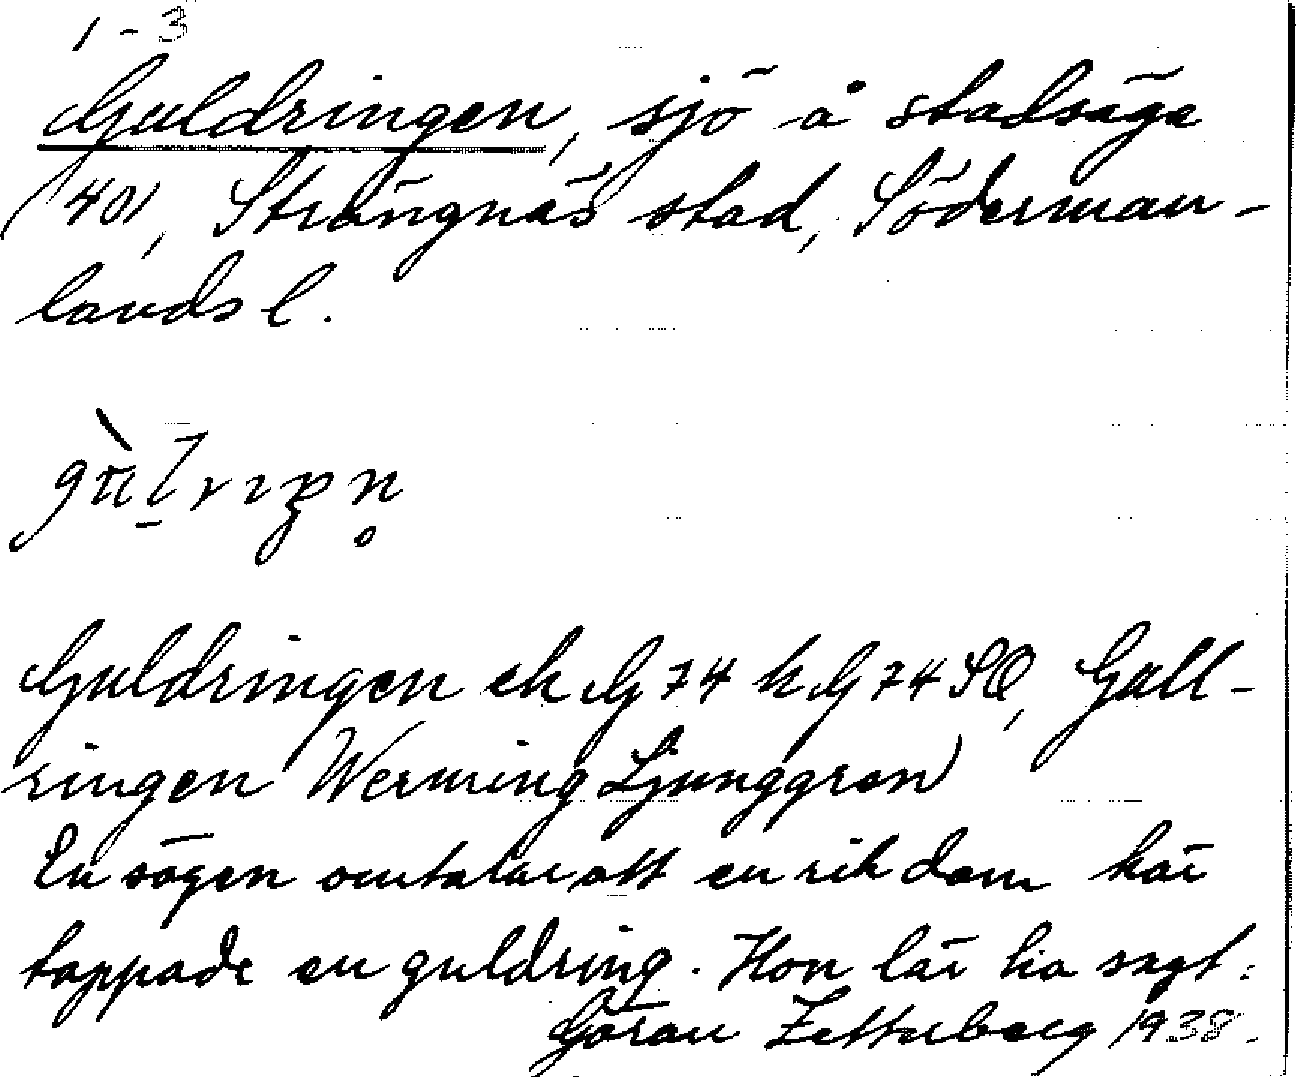 1-3
Guldringen, sjö å stadsäga
401, Strängnäs stad, Söderman-
lands l.
Guldringen ek G 74 k G 74 SO, Gull-
ringen Werming Ljunggren)
En sägen omtalar att en rik dam här
tappade en guldring. Hon lär ha sagt:
Göran Zetterberg 1938.